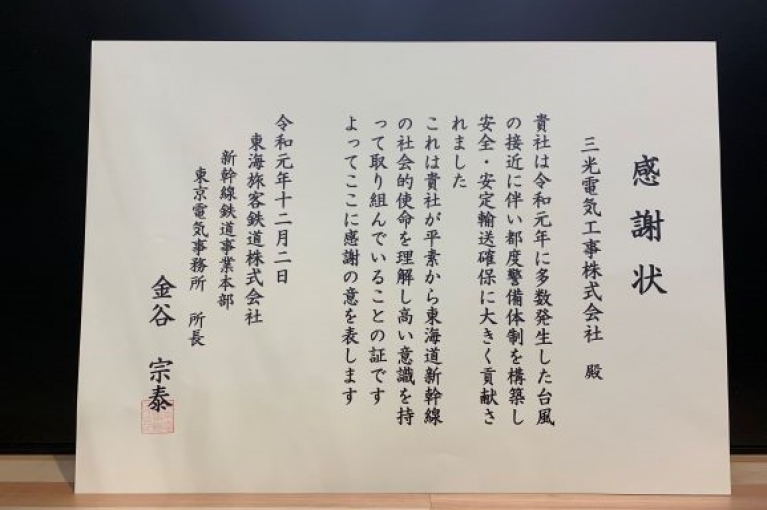 感謝状
三光電気工事株式会社 殿
貴社は令和元年に多数発生した台風
の接近に伴い都度警備体制を構築し
安全・安定輸送確保に大きく貢献さ
れました
これは貴社が平素から東海道新幹線
の社会的使命を理解し高い意識を持
って取り組んでいることの証です
よってここに感謝の意を表します
令和元年十二月二日
東海旅客鉄道株式会社
新幹線鉄道事業本部
東京電気事務所 所長
金谷 宗泰